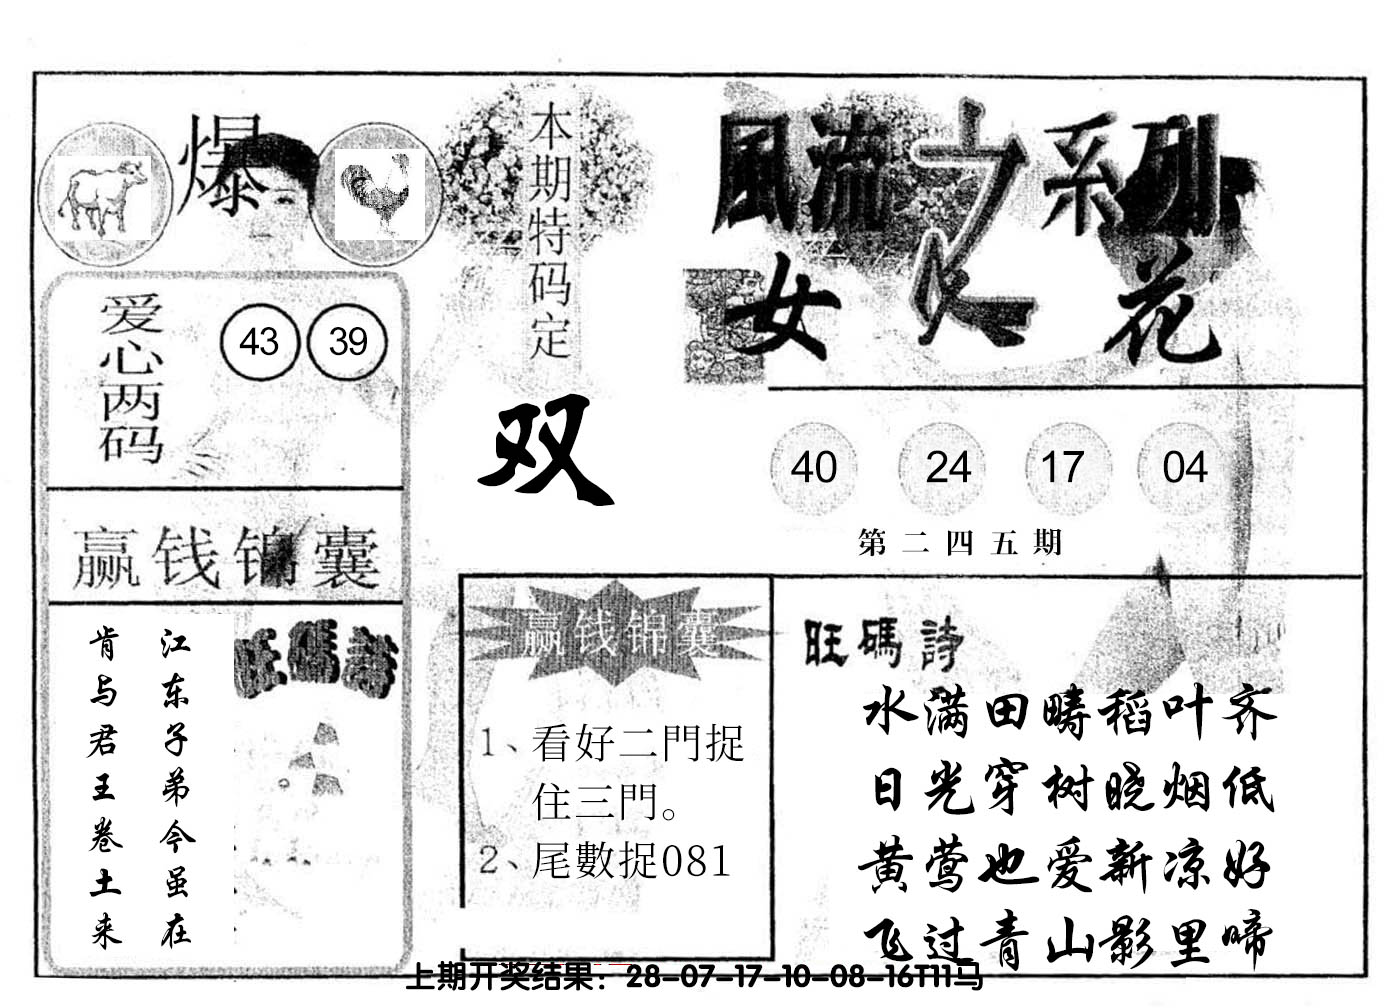 爆
本期特码定
双
風流之系列
女人花
爱心两码
43 39
40 24 17 04
第二四五期
赢钱锦囊
江东子弟今虽在
肯与君王卷土来
旺碼詩
赢钱锦囊
1、看好二門捉
住三門。
2、尾數捉081
旺碼詩
水满田畴稻叶齐
日光穿树晓烟低
黄莺也爱新凉好
飞过青山影里啼
上期开奖结果：28-07-17-10-08-16T11马